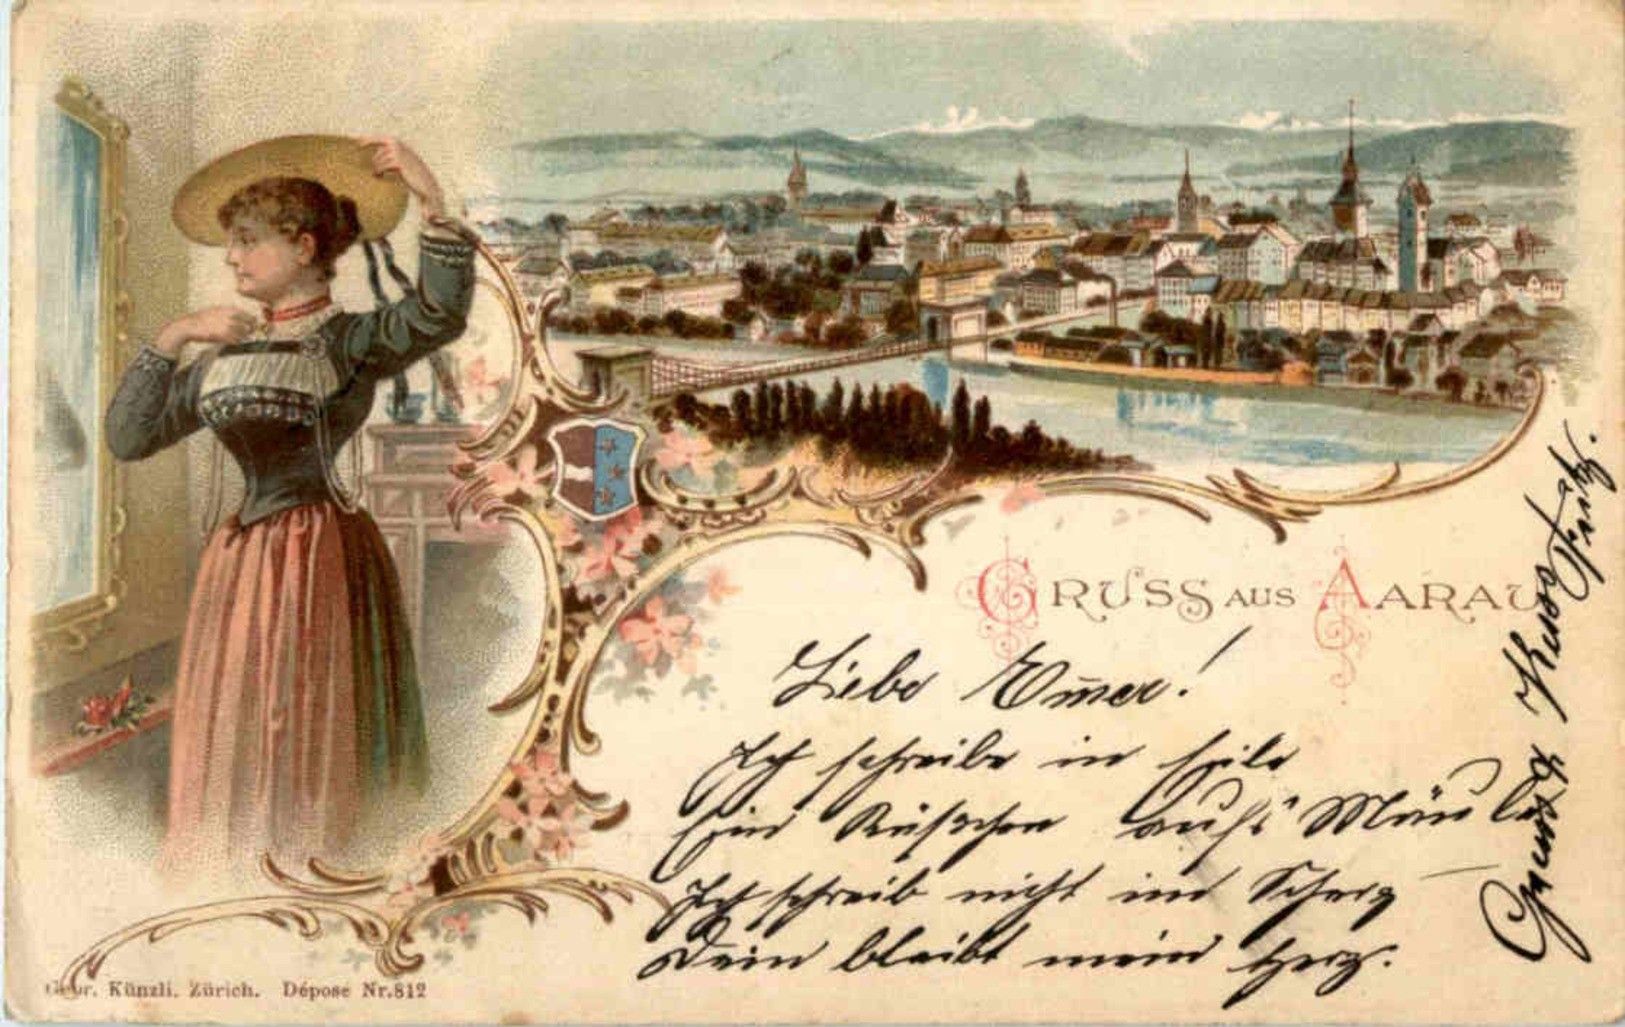 GRUSS AUS AARAU
Liebe Emar!
Ich schreibe in Eile
Ein Küsschen auf's Mäul
Ich schreib nicht im Scherz
Dein bleibt mein Herz.
Gruss & Kuss Fritz.
Gebr. Künzli, Zürich. Dépose Nr. 812